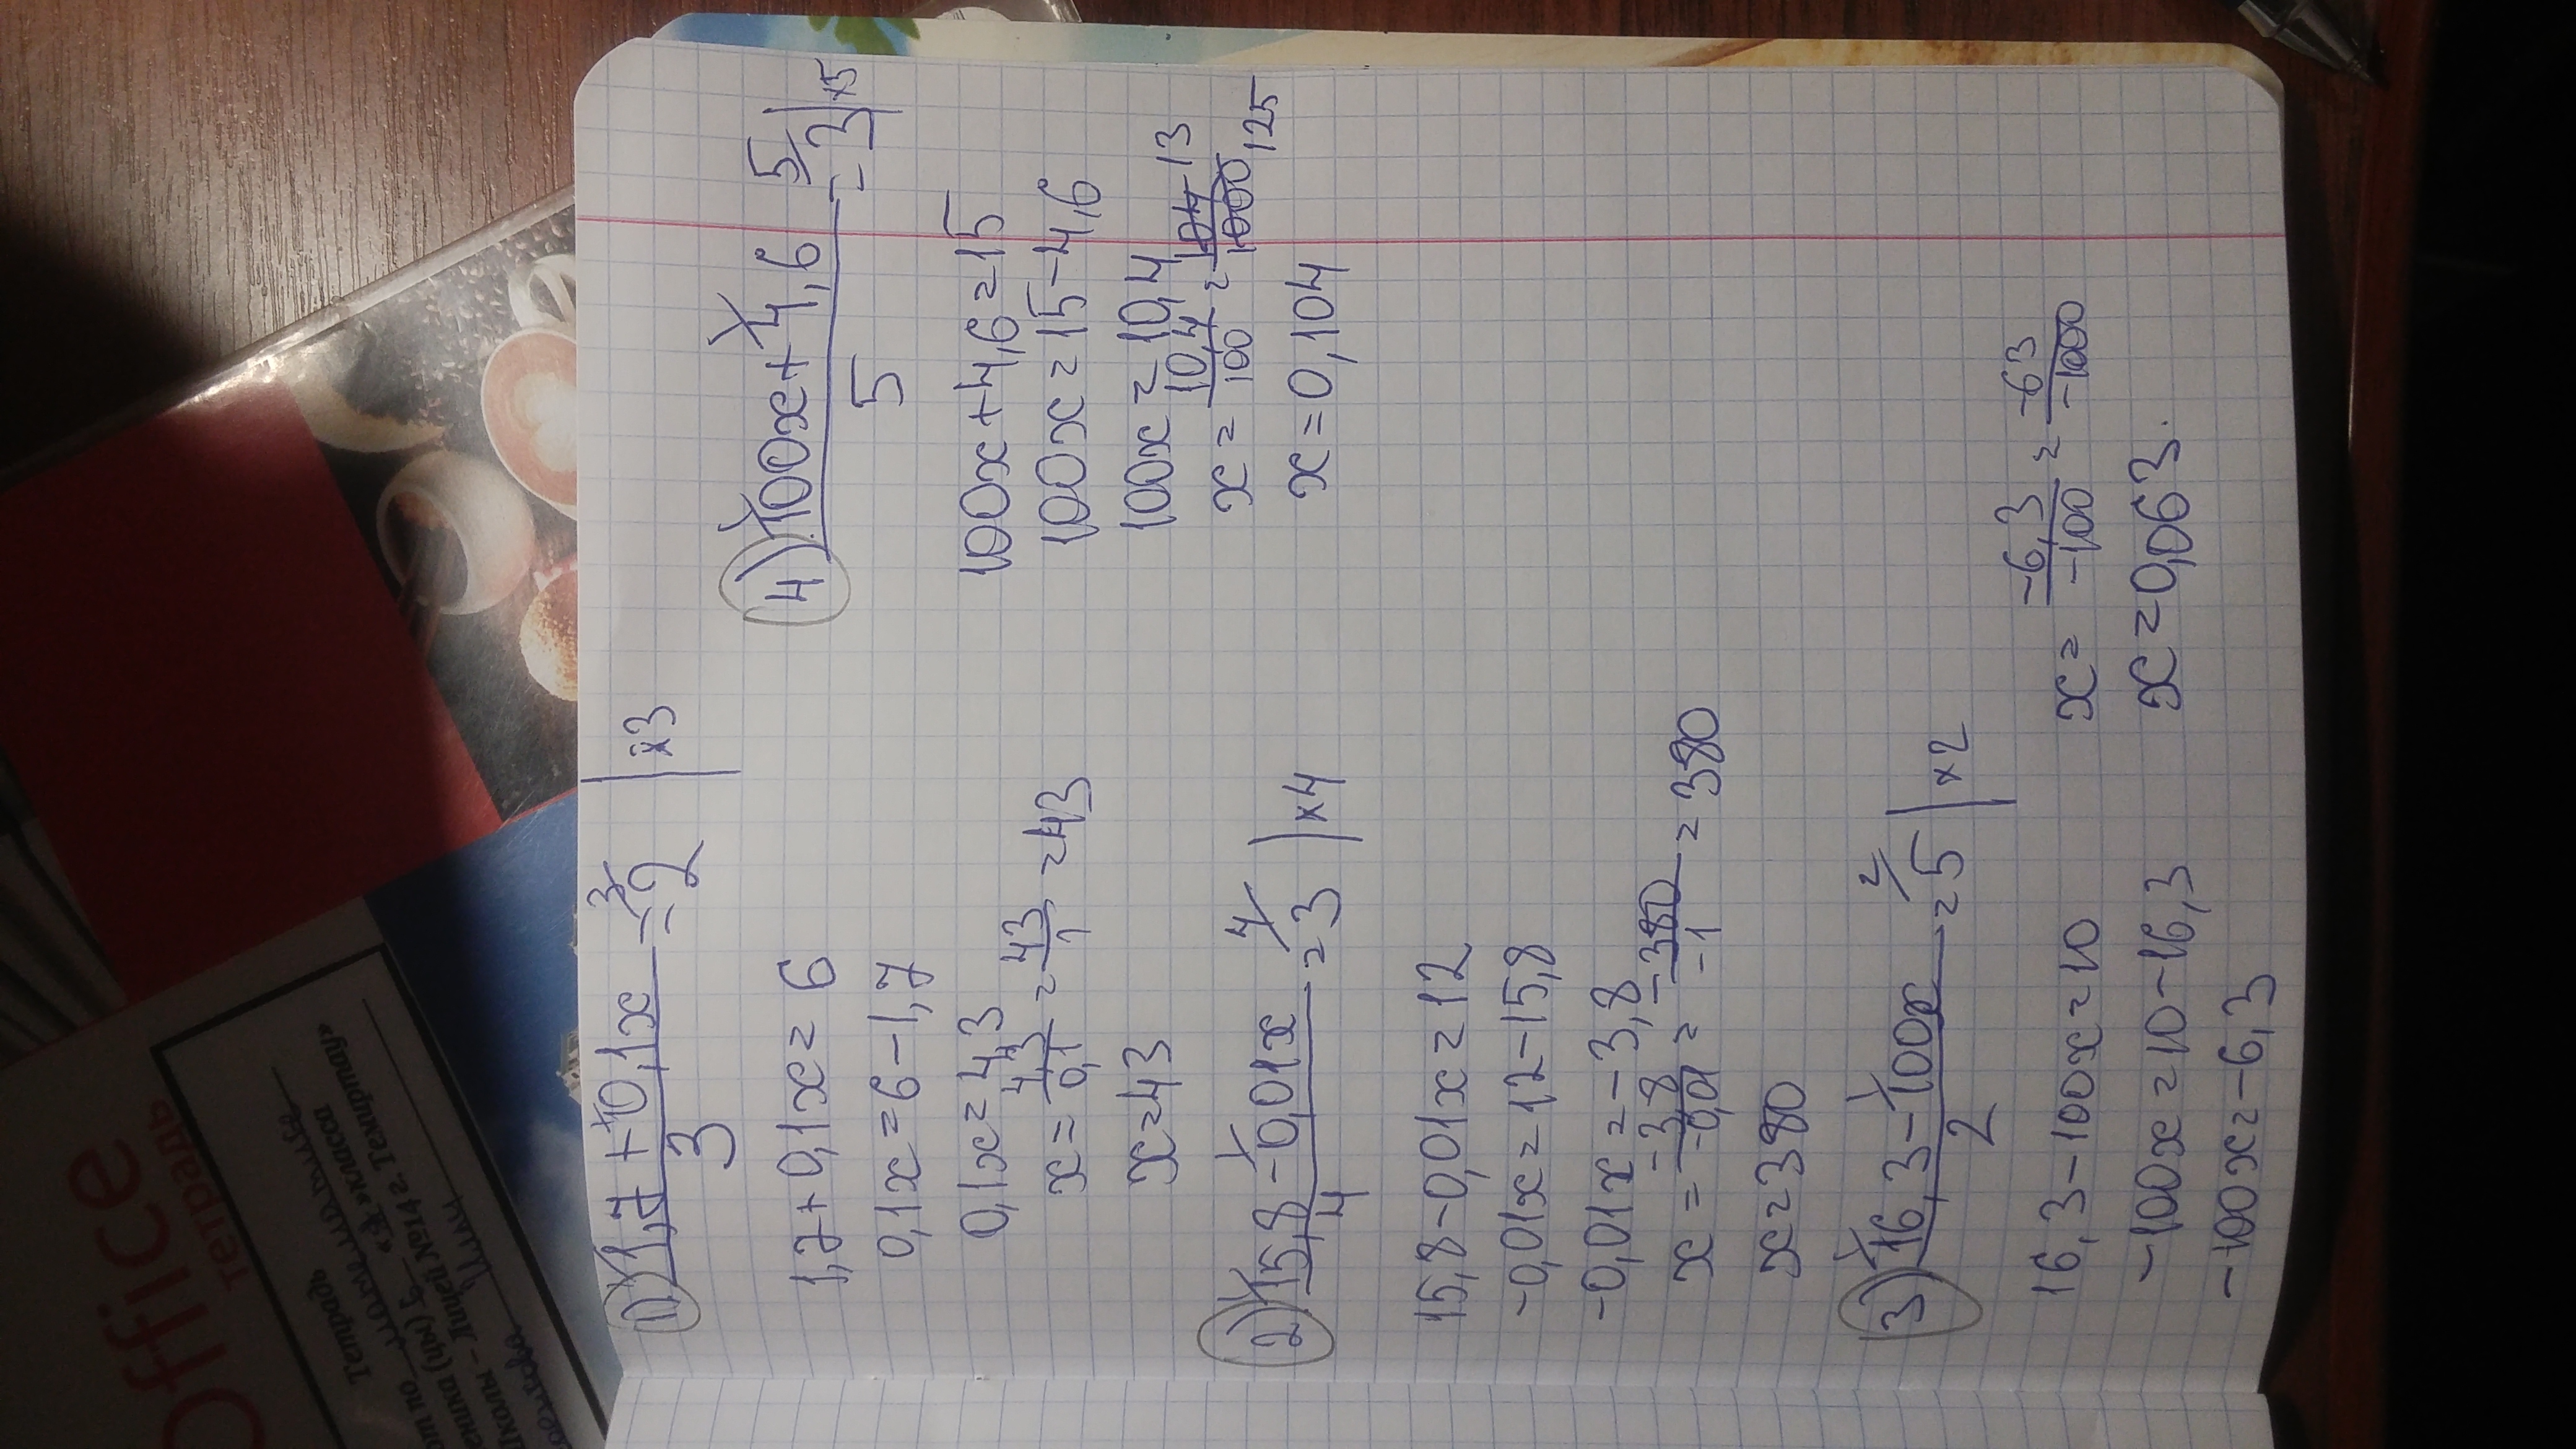 1) (1,7+0,1x)/3 = 2 | ×3
3
1,7+0,1x=6
0,1x=6-1,7
0,1x=4,3
x= 4,3/0,1 = 43/1 =43
x=43
2) (15,8-0,01x)/4 = 3 | ×4
4
15,8-0,01x=12
-0,01x=12-15,8
-0,01x=-3,8
x= -3,8/-0,01 = -380/-1 =380
x=380
3) (16,3-100x)/2 = 5 | ×2
2
16,3-100x=10
-100x=10-16,3
-100x=-6,3
x= -6,3/-100 = -63/-1000
x=0,063.
4) (100x+4,6)/5 = 3 | ×5
5
100x+4,6=15
100x=15-4,6
100x=10,4
x= 10,4/100 = 104/1000 13 125
x=0,104
office
тетрадь
Тетрадь
«А» класса
Школы - Лицей №14 г. Темиртау»